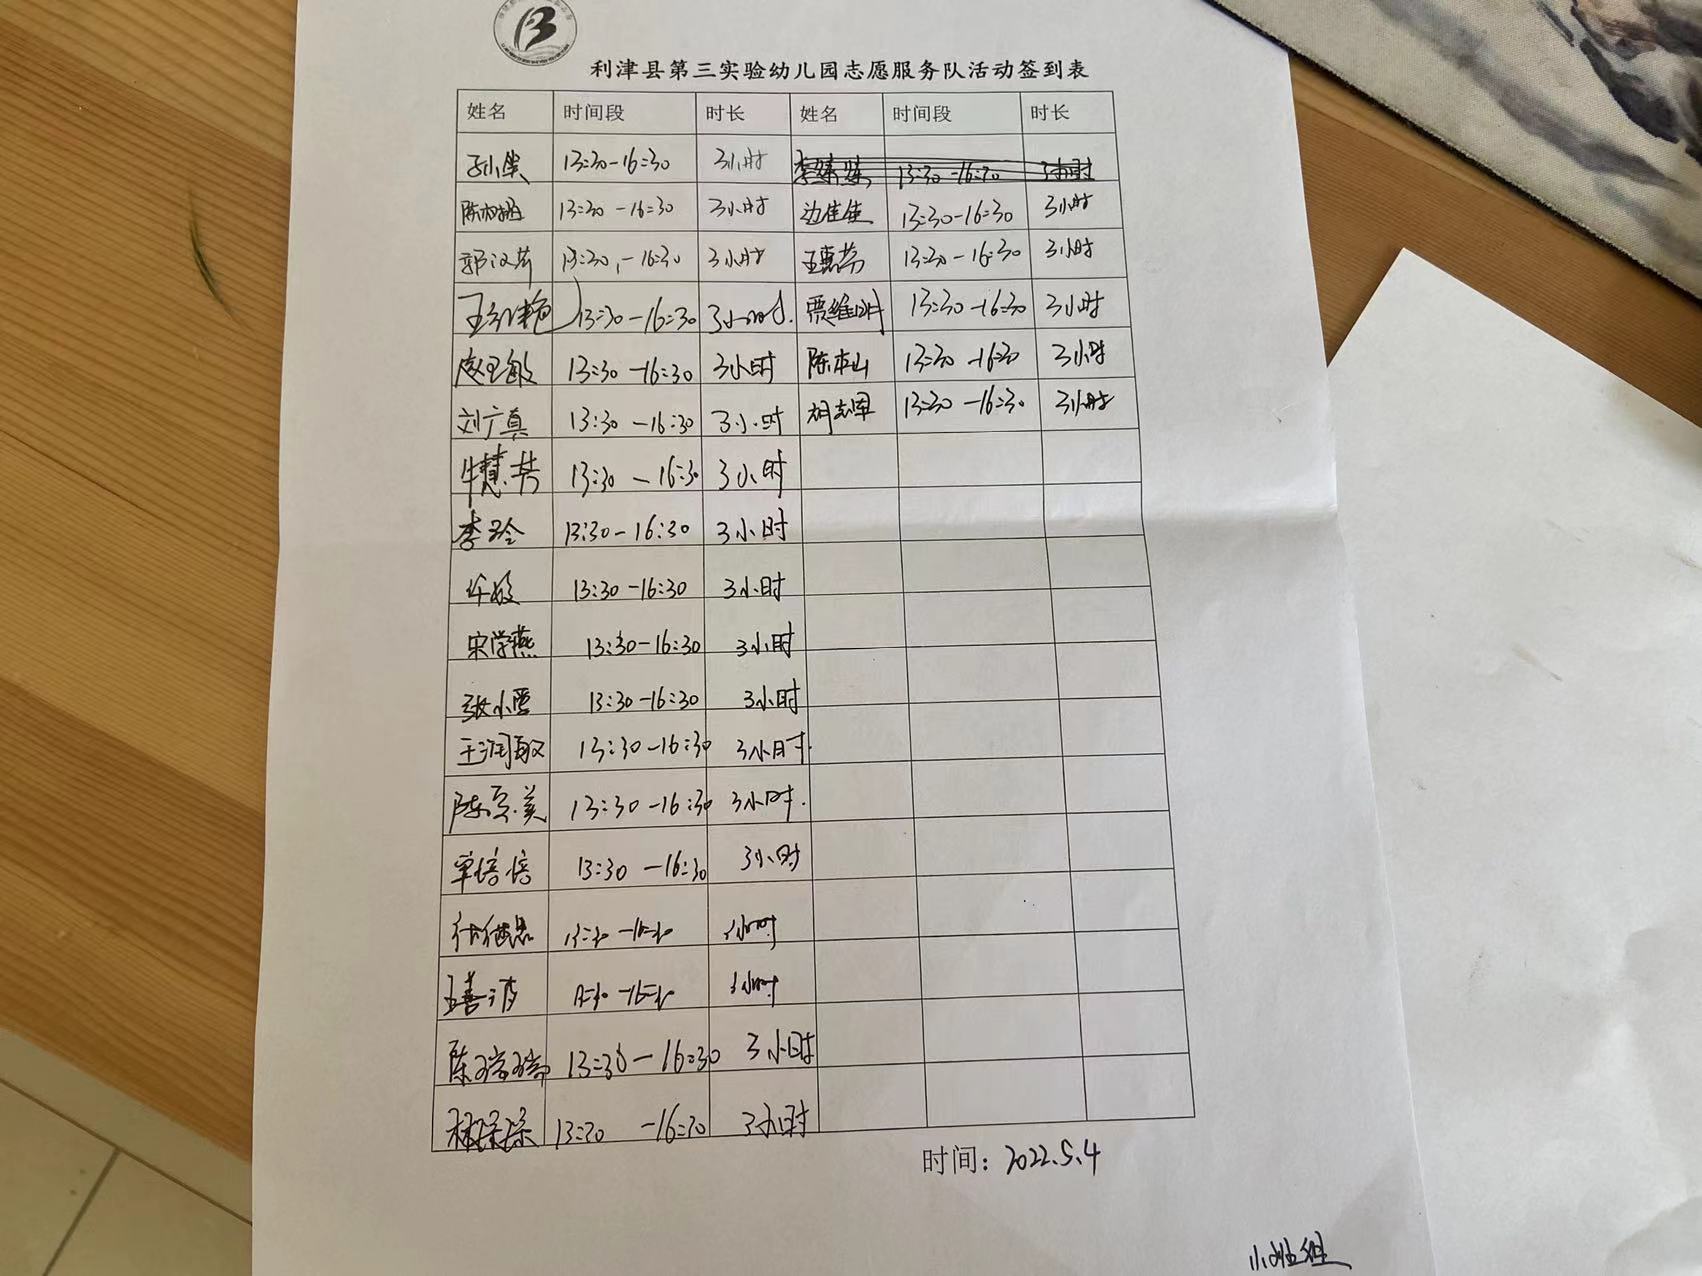 利津县第三实验幼儿园志愿服务队活动签到表
姓名 时间段 时长 姓名 时间段 时长
13:30-16:30 3小时 13:30-16:30 3小时
13:30-16:30 3小时 边佳佳 13:30-16:30 3小时
13:30-16:30 3小时 王惠芳 13:30-16:30 3小时
13:30-16:30 3小时 贾维 13:30-16:30 3小时
赵玉敏 13:30-16:30 3小时 陈本山 13:30-16:30 3小时
刘广真 13:30-16:30 3小时 胡志军 13:30-16:30 3小时
牛慧芳 13:30-16:30 3小时
李玲 13:30-16:30 3小时
许敏 13:30-16:30 3小时
宋学燕 13:30-16:30 3小时
张小雪 13:30-16:30 3小时
王润敏 13:30-16:30 3小时
陈 美 13:30-16:30 3小时
单倍倍 13:30-16:30 3小时
13:30-16:30 3小时
王善 13:30-16:30 3小时
陈瑞瑞 13:30-16:30 3小时
林 13:30-16:30 3小时
时间：2022.5.4
小班组